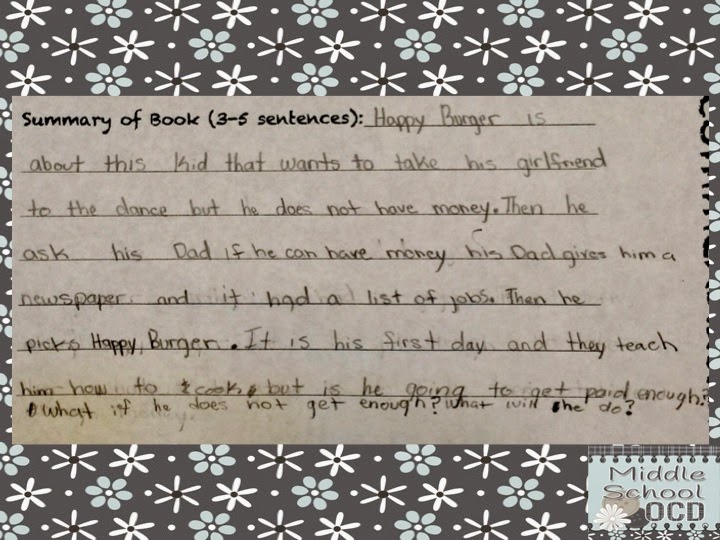 Summary of Book (3-5 sentences): Happy Burger is
about this kid that wants to take his girlfriend
to the dance but he does not have money. Then he
ask his Dad if he can have money his Dad gives him a
newspaper and it had a list of jobs. Then he
picks Happy Burger. It is his first day and they teach
him how to cook, but is he going to get paid enough?
What if he does not get enough? What will he do?
Middle
School
OCD